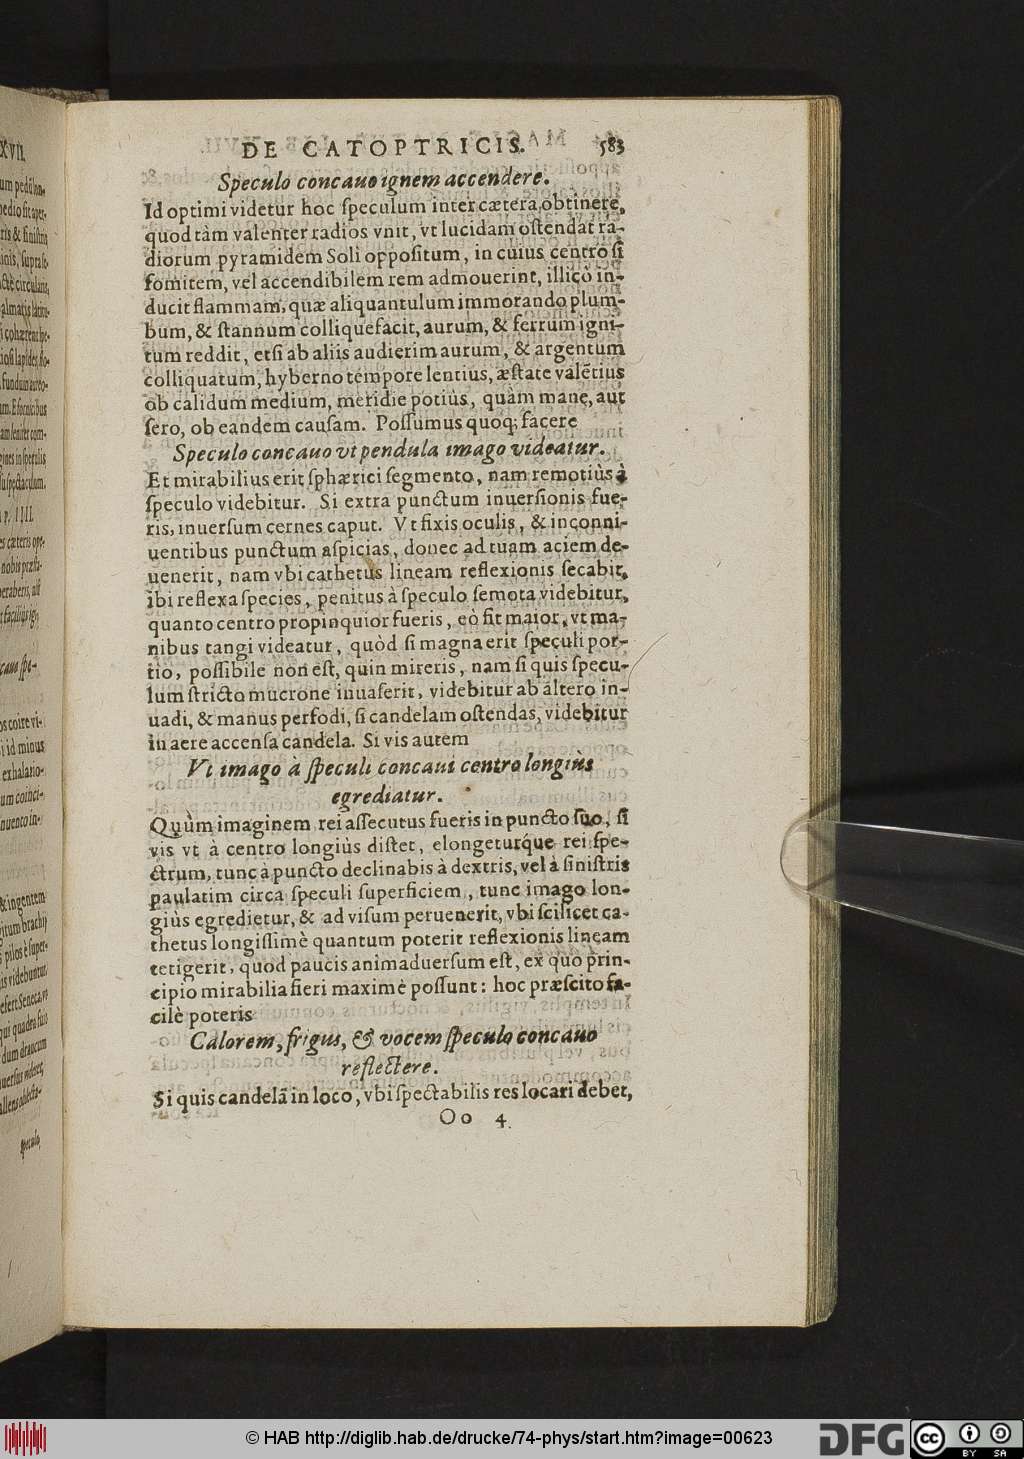 DE CATOPTRICIS. 583
Speculo concauo ignem accendere.
Id optimi videtur hoc speculum inter cætera obtinere,
quod tàm valenter radios vnit, vt lucidam ostendat ra-
diorum pyramidem Soli oppositum, in cuius centro si
fomitem, vel accendibilem rem admouerint, illicò in-
ducit flammam, quæ aliquantulum immorando plum-
bum, & stannum colliquefacit, aurum, & ferrum igni-
tum reddit, etsi ab aliis audierim aurum, & argentum
colliquatum, hyberno tempore lentius, æstate valẽtius
ob calidum medium, meridie potiùs, quàm mane, aut
sero, ob eandem causam. Possumus quoq; facere
Speculo concauo vt pendula imago videatur.
Et mirabilius erit sphærici segmento, nam remotiùs à
speculo videbitur. Si extra punctum inuersionis fue-
ris, inuersum cernes caput. Vt fixis oculis, & inconni-
uentibus punctum aspicias, donec ad tuam aciem de-
uenerit, nam vbi cathetus lineam reflexionis secabit,
ibi reflexa species, penitus à speculo semota videbitur,
quanto centro propinquior fueris, eò fit maior, vt ma-
nibus tangi videatur, quòd si magna erit speculi por-
tio, possibile non est, quin mireris, nam si quis specu-
lum stricto mucrone inuaserit, videbitur ab altero in-
uadi, & manus perfodi, si candelam ostendas, videbitur
in aere accensa candela. Si vis autem
Vt imago à speculi concaui centro longiùs
egrediatur.
Quùm imaginem rei assecutus fueris in puncto suo, si
vis vt à centro longiùs distet, elongeturq́ue rei spe-
ctrum, tunc à puncto declinabis à dextris, vel à sinistris
paulatim circa speculi superficiem, tunc imago lon-
giùs egredietur, & ad visum peruenerit, vbi scilicet ca-
thetus longissimè quantum poterit reflexionis lineam
tetigerit, quod paucis animaduersum est, ex quo prin-
cipio mirabilia fieri maximè possunt: hoc præscito fa-
cilè poteris
Calorem, frigus, & vocem speculo concauo
reflectere.
Si quis candelã in loco, vbi spectabilis res locari debet,
Oo 4
© HAB http://diglib.hab.de/drucke/74-phys/start.htm?image=00623
DFG
cc BY SA